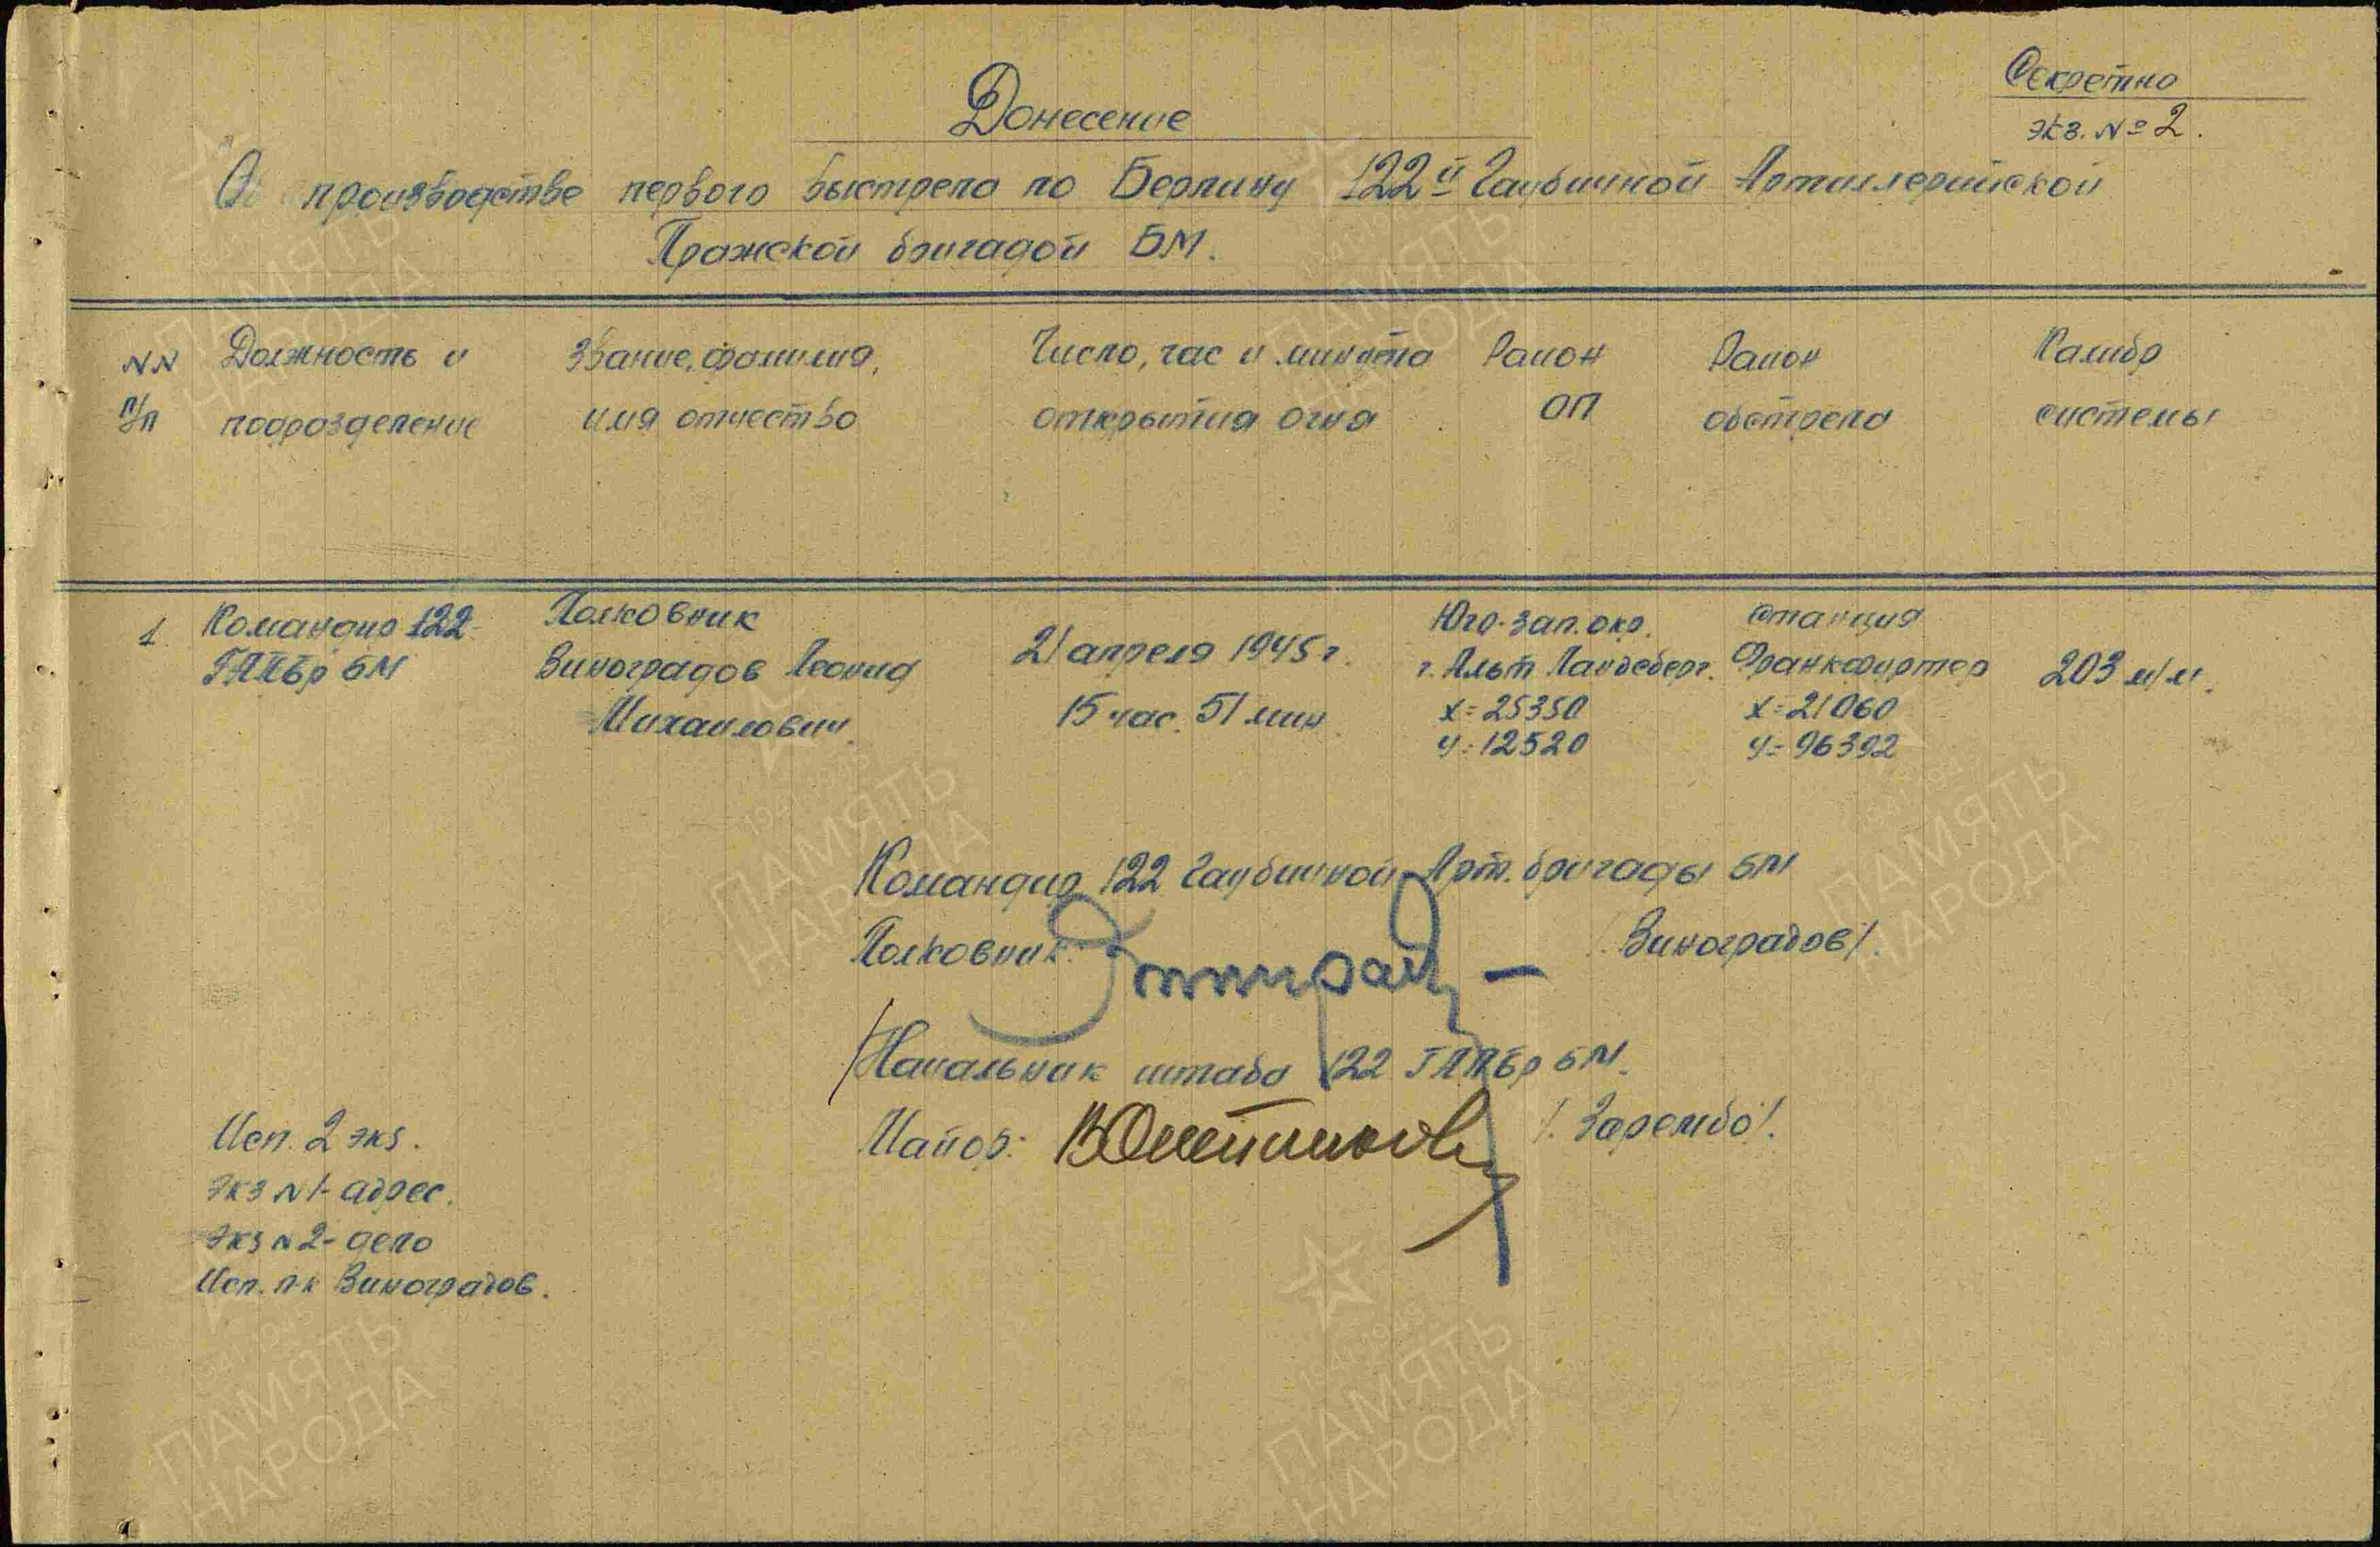 Секретно
экз. № 2.
Донесение
О производстве первого выстрела по Берлину 122й Гаубичной Артиллерийской
Пражской бригадой БМ.
NN Должность и Звание, фамилия, Число, час и минута Район Район Калибр
п/п подразделение имя отчество открытия огня ОП обстрела системы
1 Командир 122- Полковник 21 апреля 1945 г. Юго-зап. окр. станция 203 м/м.
ГАПБр БМ Виноградов Леонид 15 час. 51 мин. г. Альт Ландсберг. Франкфуртер
Михаилович x=25350 x=21060
y=12520 y=96392
Командир 122 Гаубичной Арт. бригады БМ
Полковник: /Виноградов/.
/Начальник штаба 122 ГАПБр БМ.
Майор: /Зарембо/.
Исп. 2 экз.
Экз N1-адрес.
Экз N2-дело
Исп. п-к Виноградов.
1941-1945
ПАМЯТЬ
НАРОДА